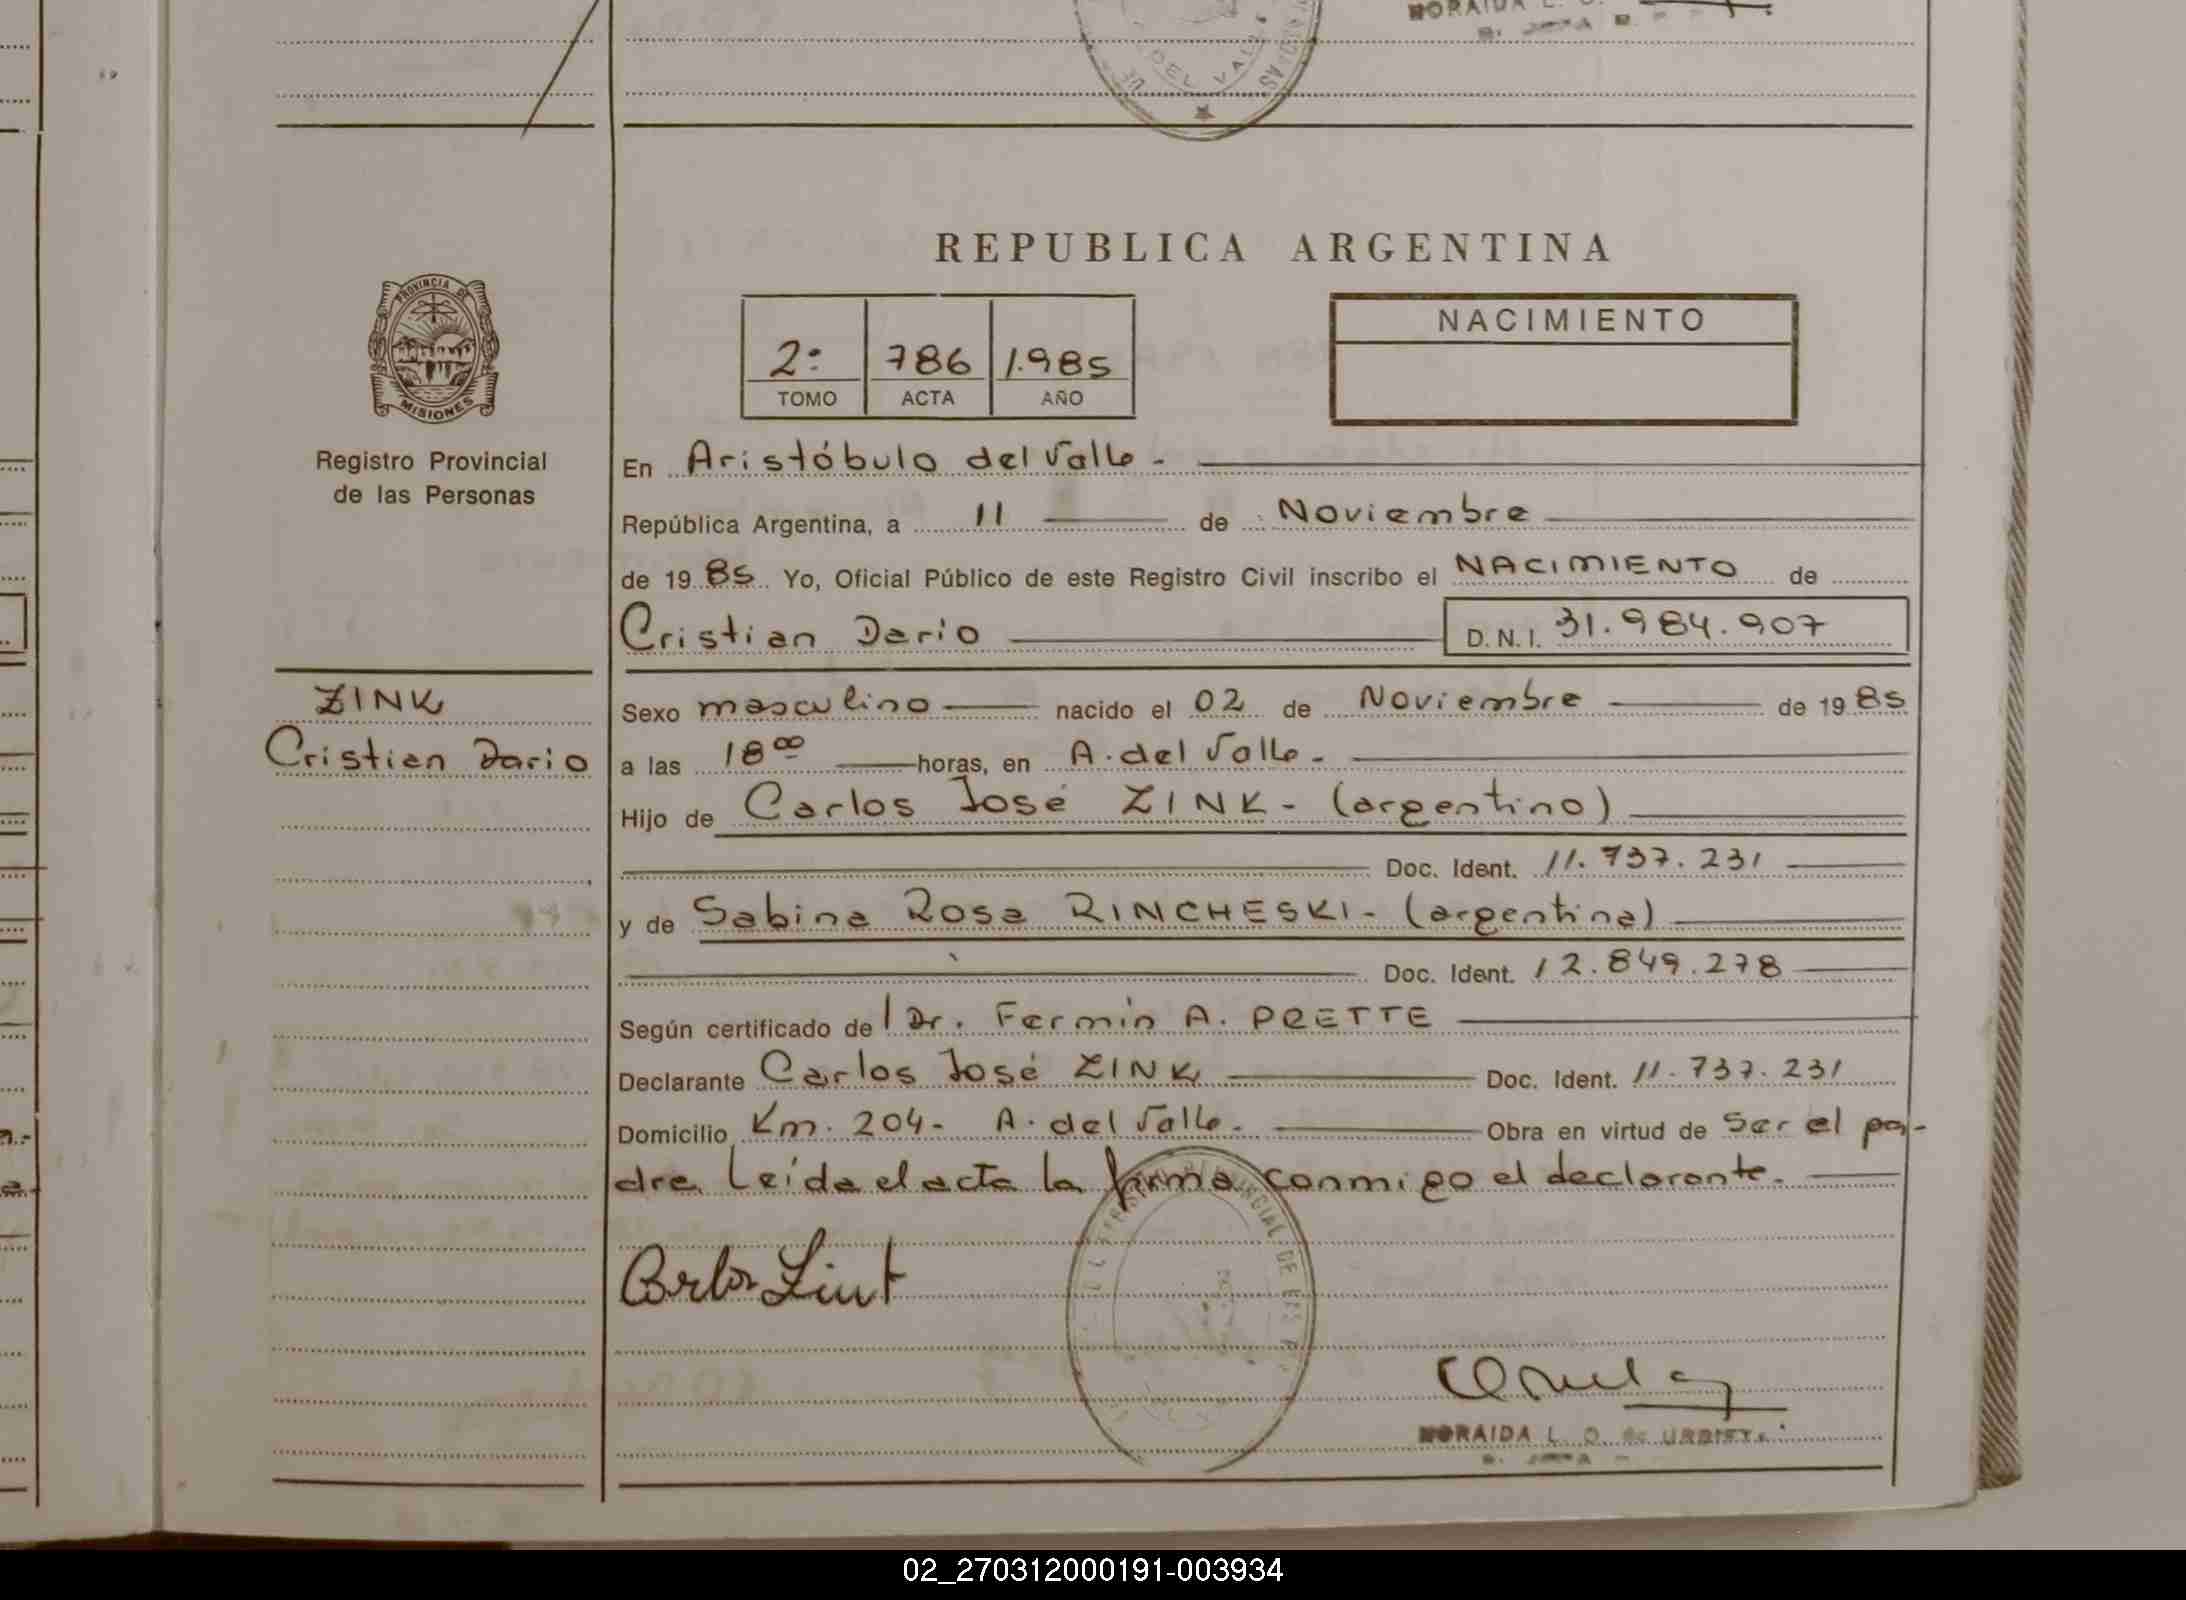 NORAIDA L.
DEL VALLE
REPUBLICA ARGENTINA
PROVINCIA DE
MISIONES
Registro Provincial
de las Personas
2: 786 1.985
TOMO ACTA AÑO
NACIMIENTO
En Aristóbulo del Valle -
República Argentina, a 11 de Noviembre
de 1985 Yo, Oficial Público de este Registro Civil inscribo el NACIMIENTO de
Cristian Dario D.N.I. 31.984.907
ZINK
Cristian Dario
Sexo masculino nacido el 02 de Noviembre de 1985
a las 18 00 horas, en A. del Valle -
Hijo de Carlos José ZINK - (argentino)
Doc. Ident. 11.737.231
y de Sabina Rosa RINCHESKI - (argentina)
Doc. Ident. 12.849.278
Según certificado de Dr. Fermin A. PRETTE
Declarante Carlos José ZINK Doc. Ident. 11.737.231
Domicilio Km. 204 - A. del Valle - Obra en virtud de ser el pa-
dre. Leída el acta la firma conmigo el declarante.
PROVINCIAL DE LAS
NORAIDA L. O. de URBIETA
02_270312000191-003934